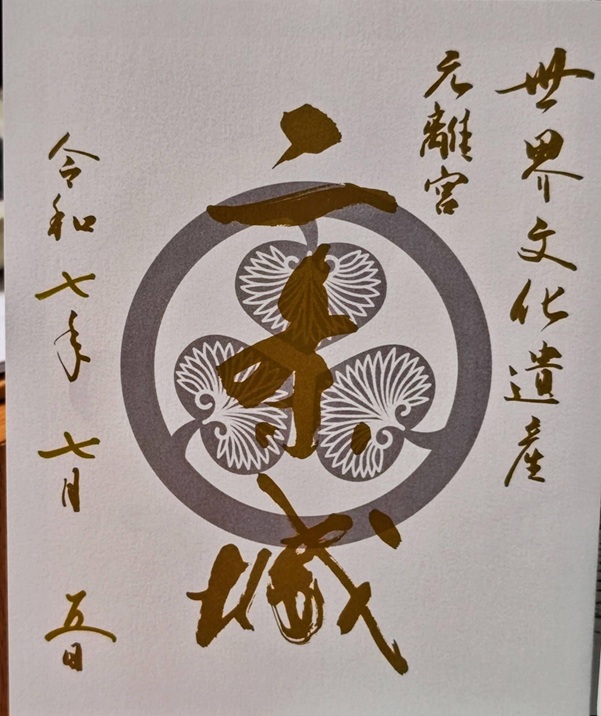 世界文化遺産
元離宮
二条城
令和七年 七月 五日